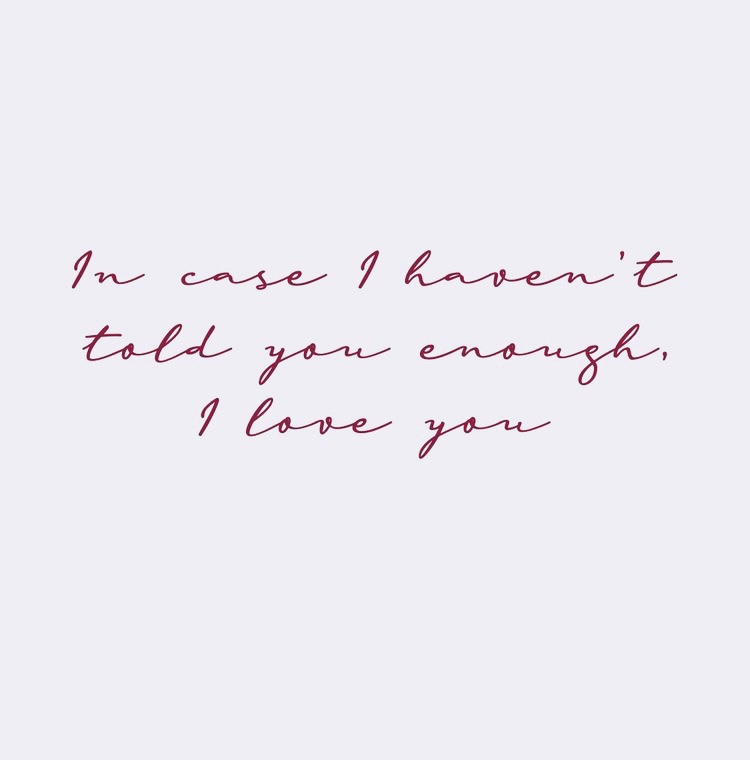 In case I haven't
told you enough,
I love you